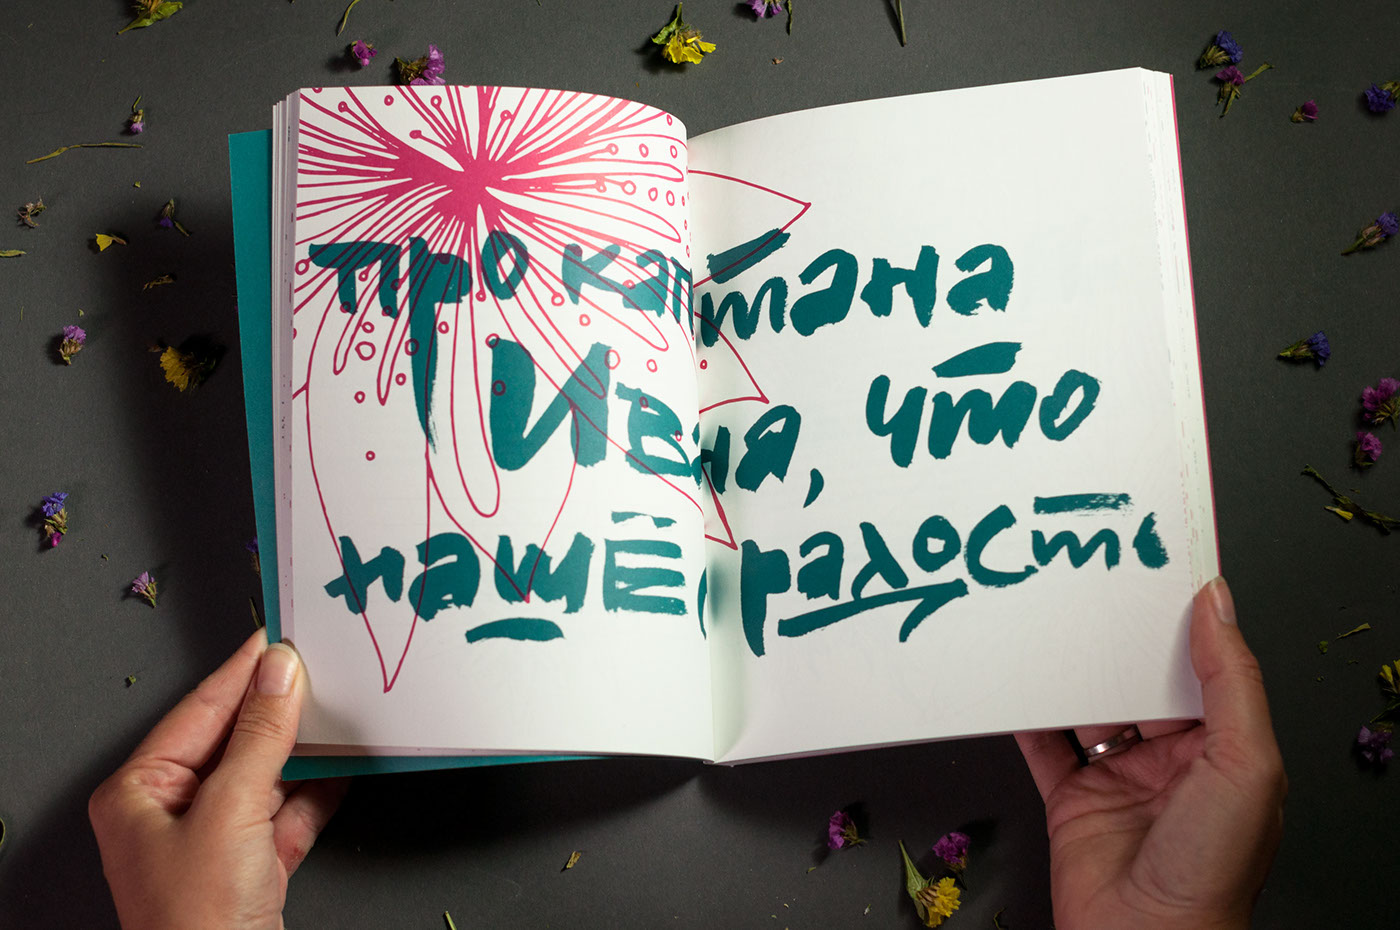 про каптана
Ивана, что
наше радость